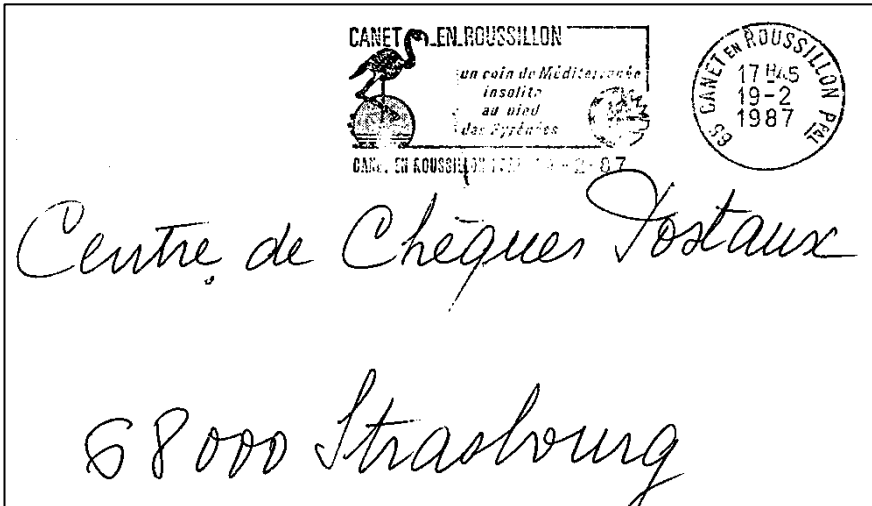 CANET EN ROUSSILLON
un coin de Méditerranée
insolite
au pied
des Pyrénées
CANET EN ROUSSILLON 19-2-87
CANET EN ROUSSILLON PPAL
17H45
19-2
1987
Centre de Chèques Postaux
68000 Strasbourg